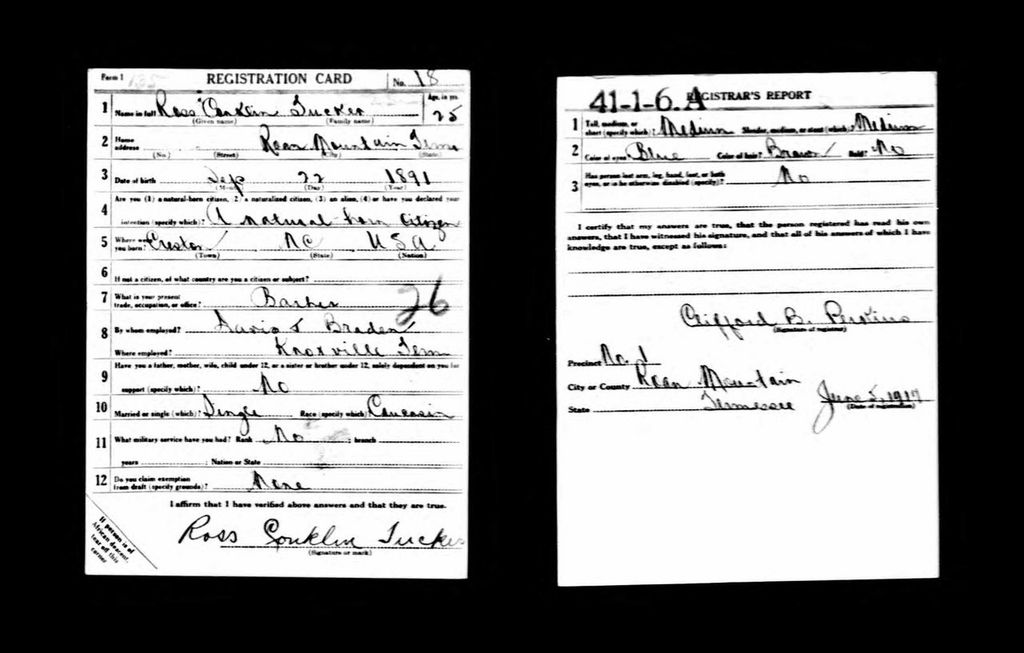 Form 1 135 REGISTRATION CARD No. 18
1 Name in full Ross Conklin Tucker Age, in yrs. 25
(Given name) (Family name)
2 Home address Roan Mountain Tenn
(No.) (Street) (City) (State)
3 Date of birth Sep 22 1891
(Month) (Day) (Year)
4 Are you (1) a natural-born citizen, (2) a naturalized citizen, (3) an alien, (4) or have you declared your
intention (specify which)? A natural born Citizen
5 Where were you born? Creston NC USA
(Town) (State) (Nation)
6 If not a citizen, of what country are you a citizen or subject?
7 What is your present trade, occupation, or office? Barber 26
8 By whom employed? David T Braden
Where employed? Knoxville Tenn
9 Have you a father, mother, wife, child under 12, or a sister or brother under 12, solely dependent on you for
support (specify which)? No
10 Married or single (which)? Single Race (specify which)? Caucasin
11 What military service have you had? Rank No ; branch
years ; Nation or State
12 Do you claim exemption from draft (specify grounds)? None
I affirm that I have verified above answers and that they are true.
Ross Conklin Tucker
(Signature or mark)
If person is of
African descent,
tear off this
corner
41-1-6. A REGISTRAR'S REPORT
1 Tall, medium, or short (specify which)? Medium Slender, medium, or stout (which)? Medium
2 Color of eyes? Blue Color of hair? Brown Bald? No
3 Has person lost arm, leg, hand, foot, or both eyes, or is he otherwise disabled (specify)? No
I certify that my answers are true, that the person registered has read his own
answers, that I have witnessed his signature, and that all of his answers of which I have
knowledge are true, except as follows:
Clifford B. Perkins
(Signature of registrar)
Precinct No. 1
City or County Roan Mountain
State Tennessee June 5, 1917
(Date of registration)